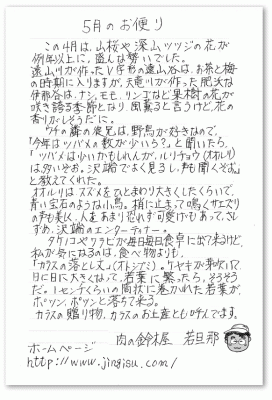 5月のお便り
この4月は、山桜や深山ツツジの花が
例年以上に、盛んな勢いでした。
遠山川が作ったV字形の遠山谷は、お茶と梅
の時期に入りますが、天竜川が作った肥沃な
伊那谷は、ナシ、モモ、リンゴなど果樹の花が
咲き誇る季節となり、風薫ると言うけど、花の
香りがしそうだに。
ウチの森の俊兄は、野鳥が好きなので、
「今年はツバメの数が少いら?」と聞いたら、
「ツバメは少いかもしれんが、ルリチョウ(オオルリ)
は多いぞお。沢端でよく見るし、声も聞くぞぉ」
と教えてくれた。
オオルリはスズメをひとまわり大きくしたくらいで、
青い宝石のような小鳥。梢に止まって鳴くサエズリ
の声も美しく、人をあまり恐れず可愛いやもあって、さし
ずめ、沢端のエンターティナー。
タケノコやワラビが毎日毎日食卓に出て来るけど、
私が気になるのは、食べ物よりも、
「カラスの落とし文」(オトシブミ)。ケヤキが芽吹いて
日に日に大きくなって、若葉に繁ったら、そろそろ
だ。1センチくらいの筒状に巻かれた若葉が、
ポツン、ポツンと落ちて来る。
カラスの贈り物、カラスのお土産とも呼んでます。
肉の鈴木屋 若旦那
ホームページ
http://www.jingisu.com/